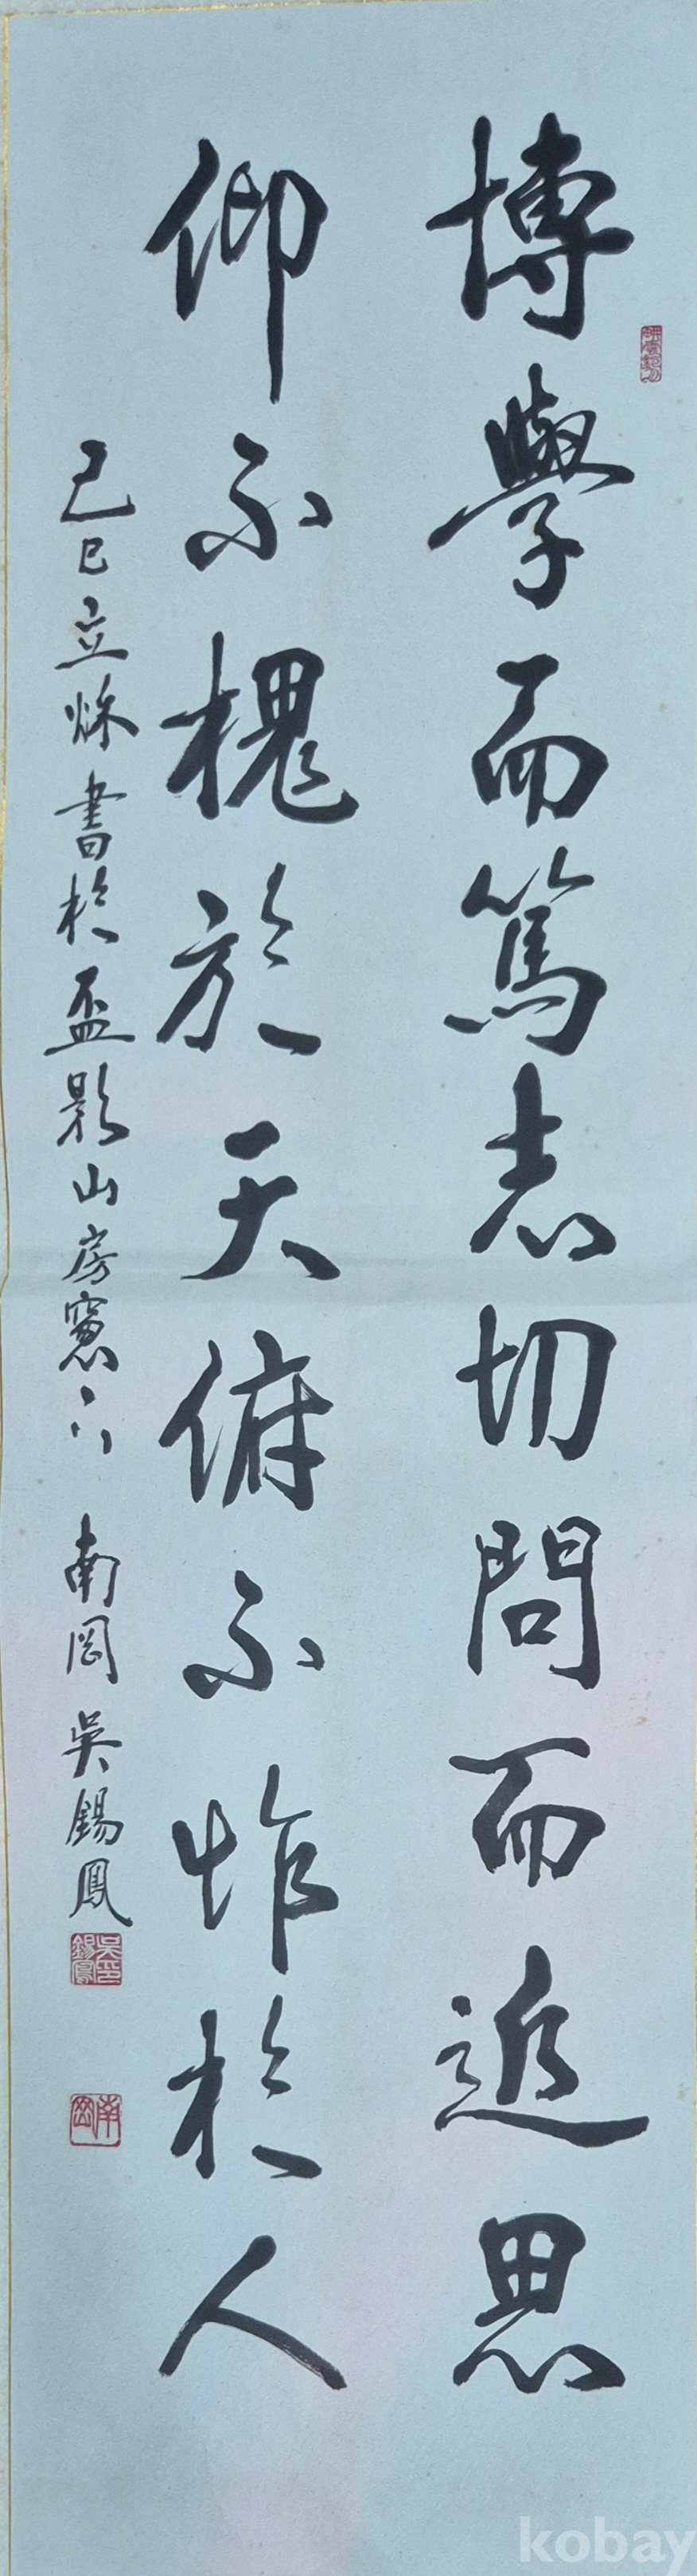 博學而篤志切問而近思
仰不槐於天俯不怍於人
己巳立烁書於盃影山房窓下 南岡 吳錫鳳
吳錫鳳印
南岡
kobay